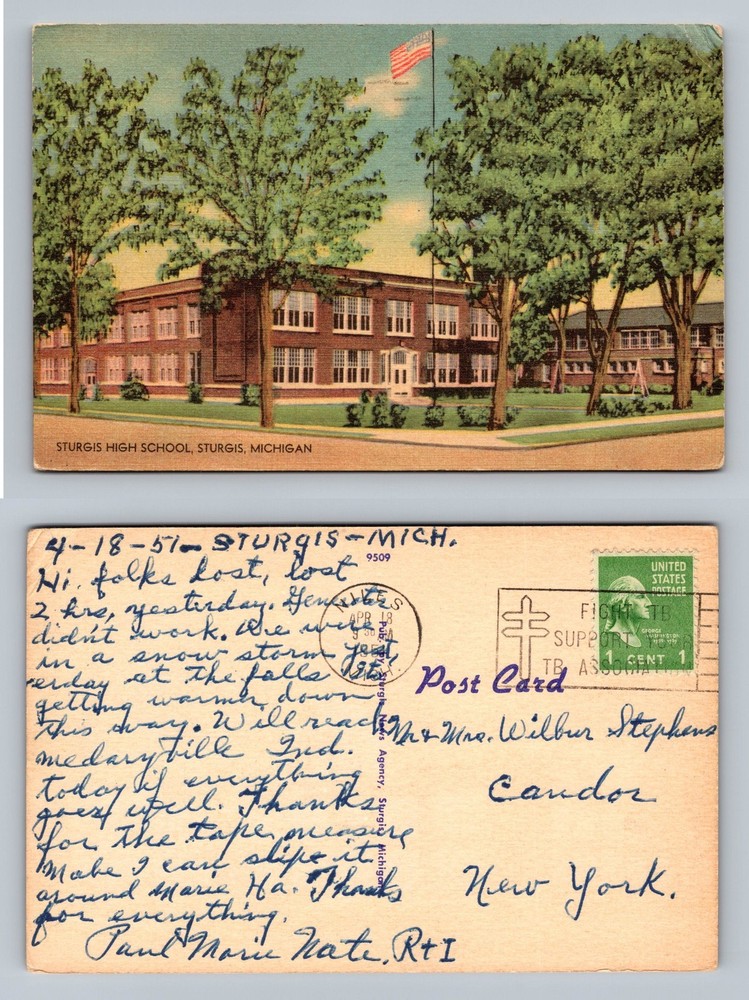 STURGIS HIGH SCHOOL, STURGIS, MICHIGAN
4-18-51- STURGIS-MICH.
9509
Hi. folks Lost, lost
2 hrs, yesterday.
didn't work. We were
in a snow storm yest
erday at the falls Its
getting warmer down
this way. Will reach
medaryville Ind.
today if everything
goes well. Thanks
for the tape measure
Mabe I can slip it
around Marie Ha. Thanks
for everything.
Paul Marie Nate, R+I
NILES
APR 18
9 30 AM
MICH.
FIGHT TB
SUPPORT YOUR
TB ASSOCIATION
UNITED
STATES
POSTAGE
GEORGE
WASHINGTON
1 CENT 1
Post Card
Pub. by Sturgis News Agency, Sturgis, Michigan
Mr & Mrs. Wilbur Stephens
Candor
New York.